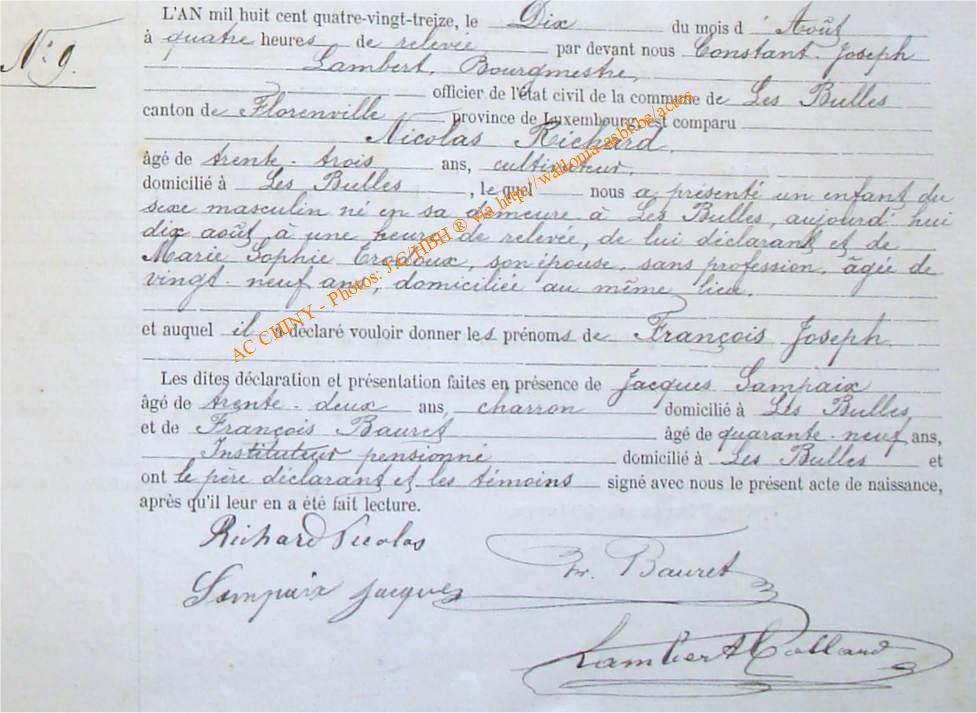 L'AN mil huit cent quatre-vingt-treize, le Dix du mois d'Août
N° 9.
à quatre heures de relevée par devant nous Constant Joseph
Lambert, Bourgmestre,
officier de l'état civil de la commune de Les Bulles
canton de Florenville province de Luxembourg, est comparu
Nicolas Richard,
âgé de trente-trois ans, cultivateur,
domicilié à Les Bulles, le quel nous a présenté un enfant du
sexe masculin né en sa demeure à Les Bulles, aujourd'hui
dix août, à une heure de relevée, de lui déclarant et de
Marie Sophie Crodoux, son épouse, sans profession, âgée de
vingt-neuf ans, domiciliée au même lieu.
et auquel il a déclaré vouloir donner les prénoms de François Joseph
Les dites déclaration et présentation faites en présence de Jacques Lampaix
âgé de trente-deux ans, charron domicilié à Les Bulles
et de François Bauret âgé de quarante-neuf ans,
Instituteur pensionné domicilié à Les Bulles et
ont le père déclarant et les témoins signé avec nous le présent acte de naissance,
après qu'il leur en a été fait lecture.
Richard Nicolas
Fr. Bauret
Lampaix Jacques
Lambert Collard
AC CHINY - Photos: J.G/HBH ® via http://wallonia-asbl.be/actes